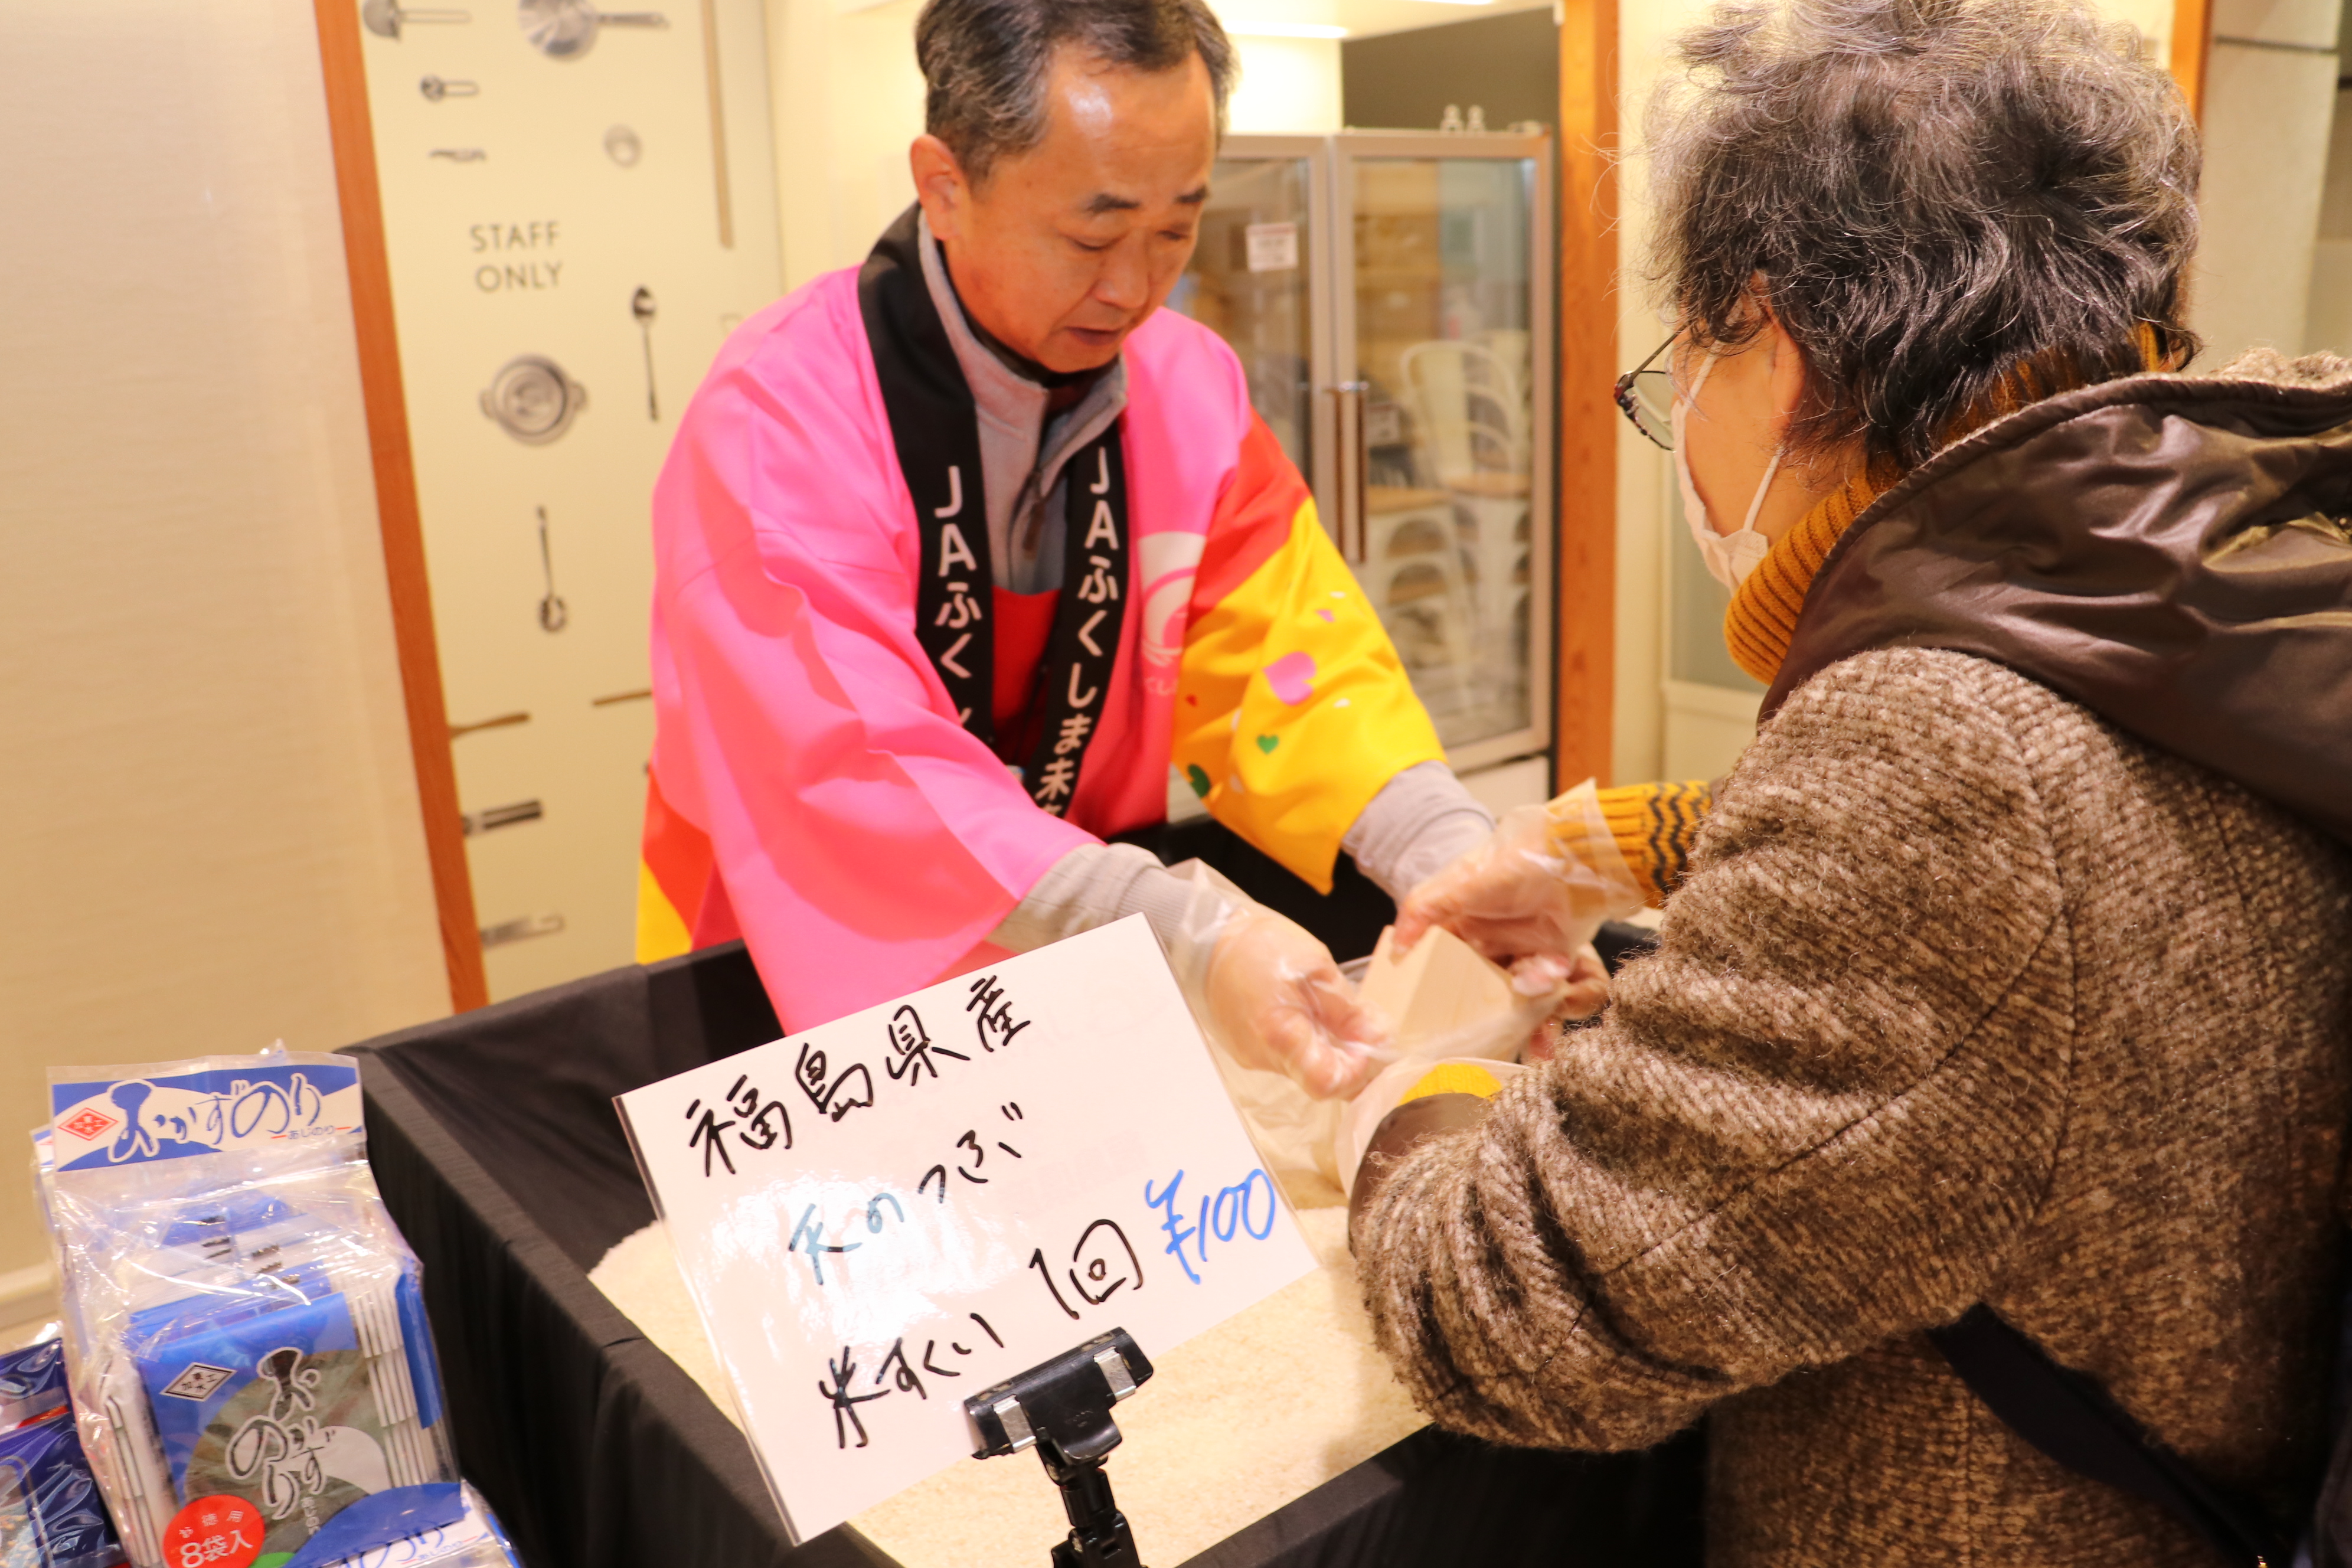 STAFF
ONLY
JAふくし
JAふくしま未
福島県産
天のつぶ
米すくい 1回 ¥100
おかずのり
あじのり
おかず
のり
お徳用
8袋入